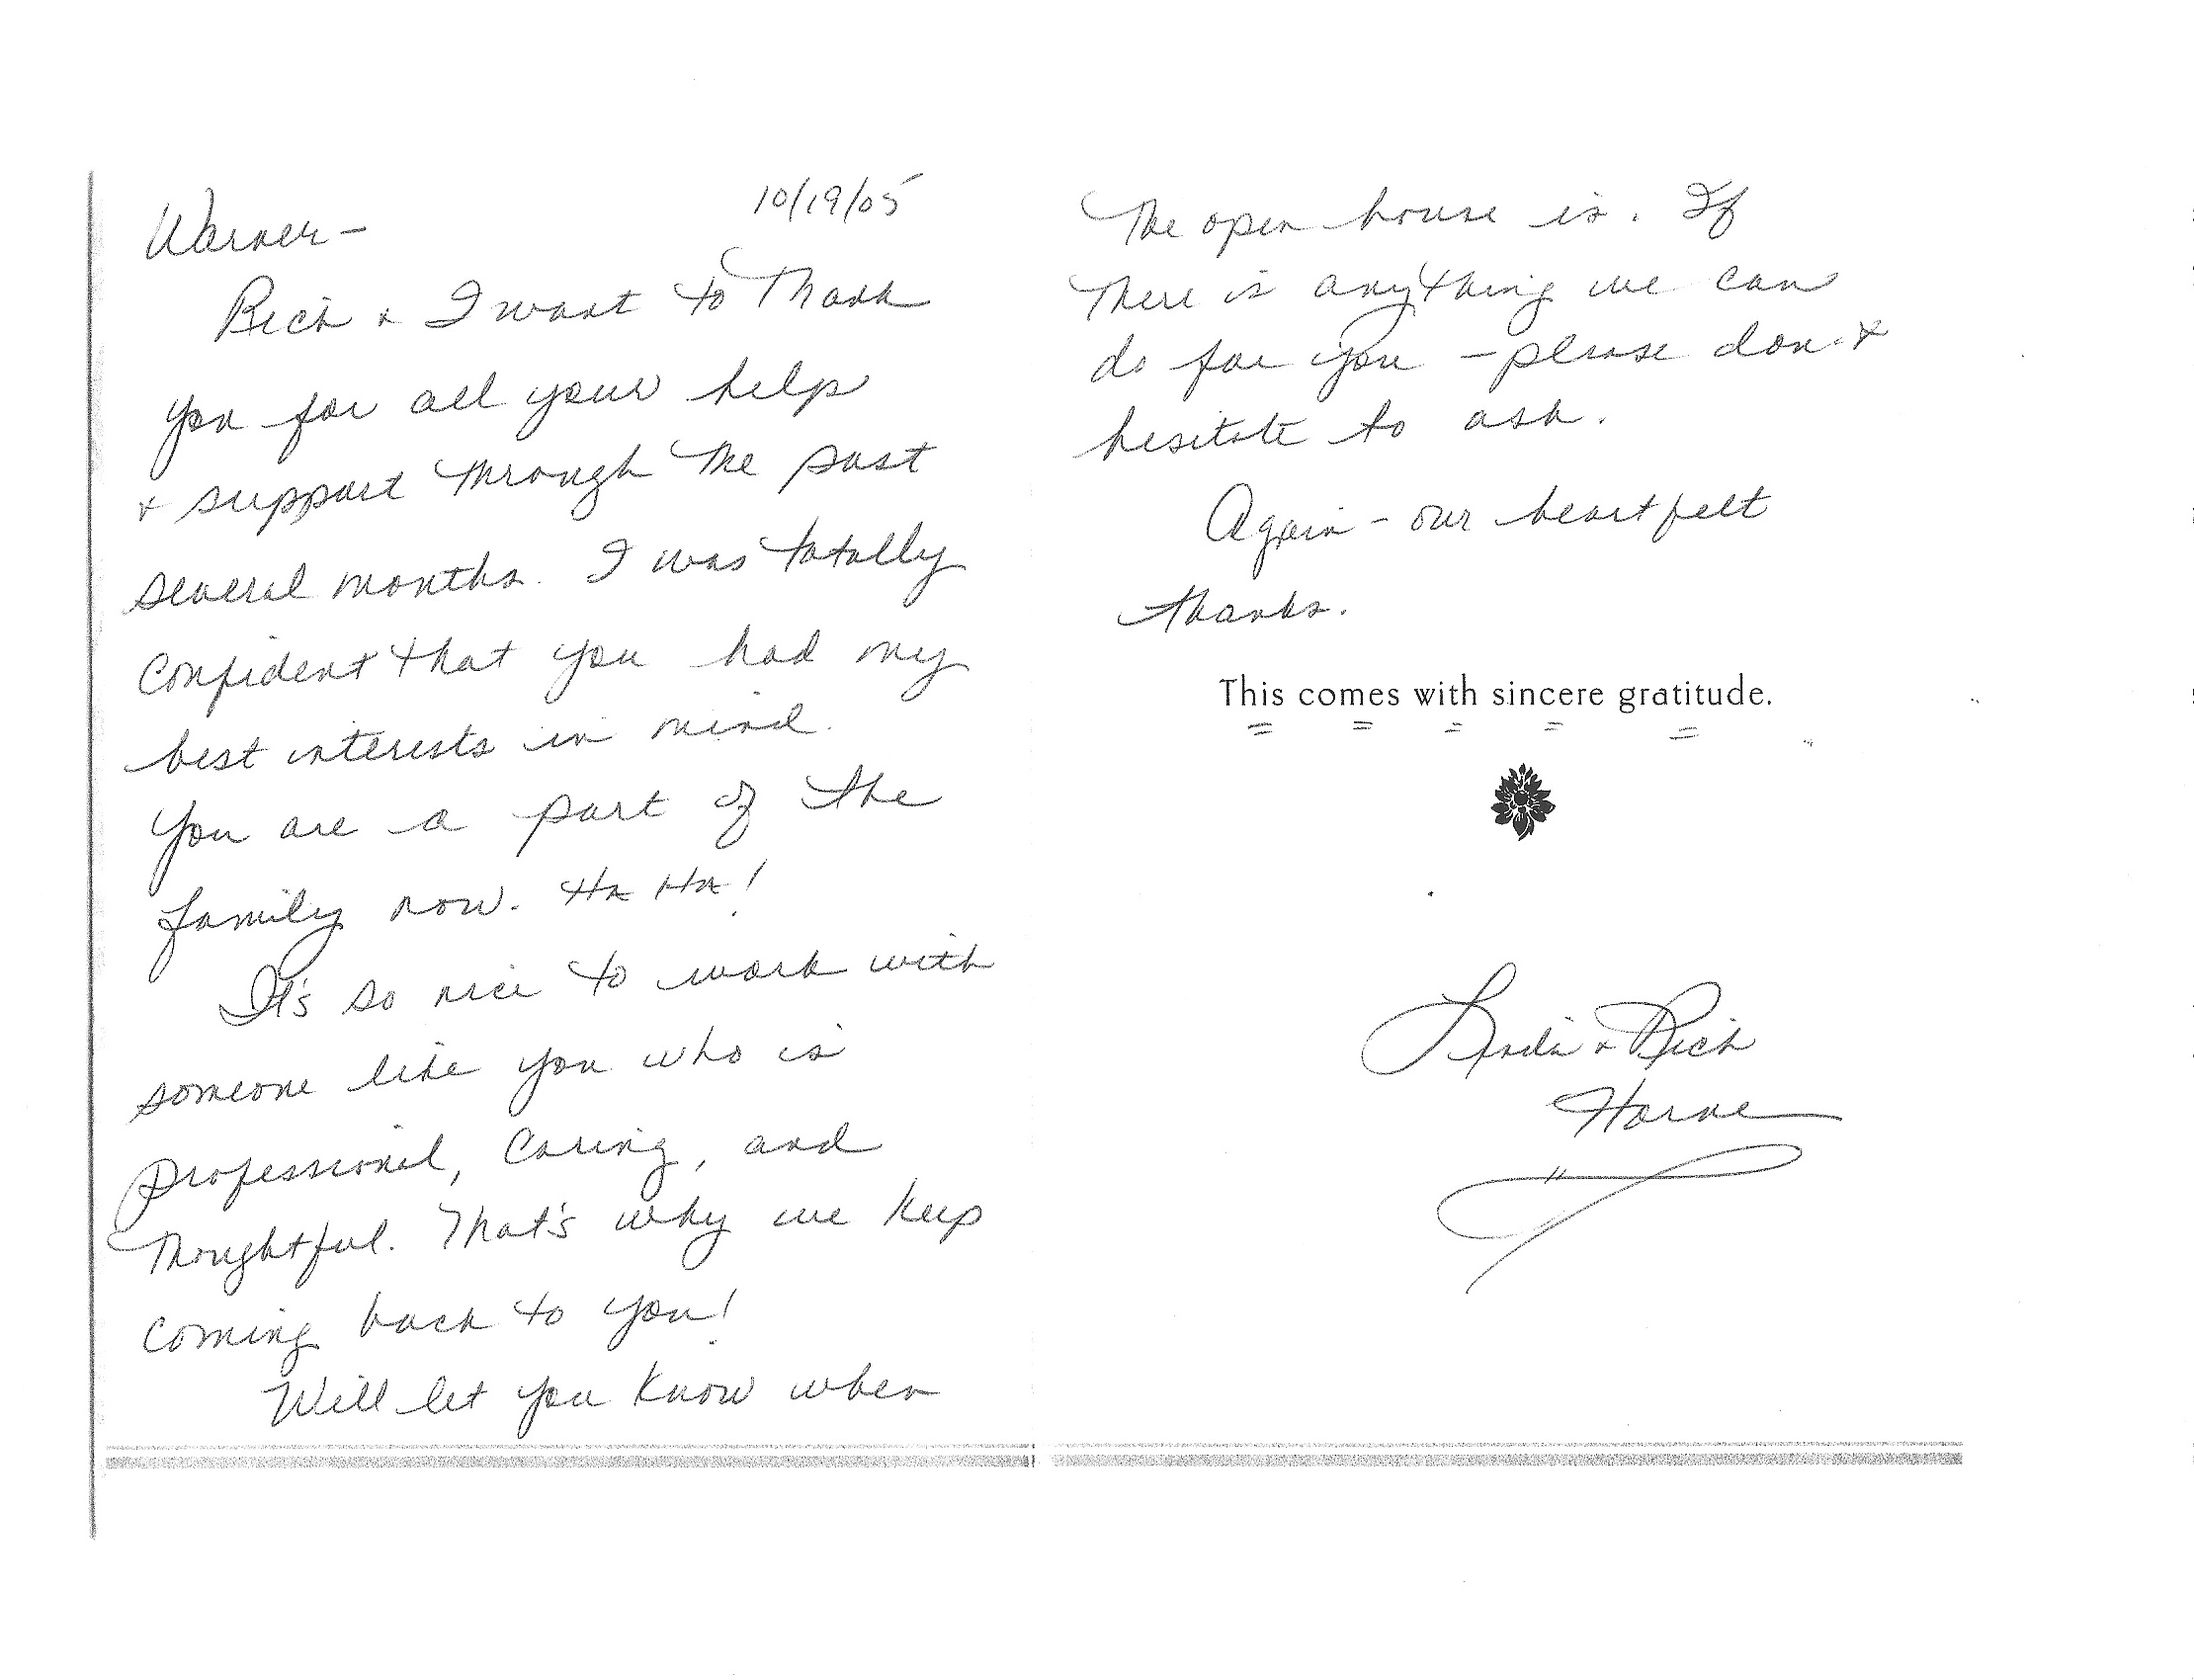 10/19/05
Warner-
Rich & I want to Thank
you for all your help
& support through the past
several months. I was totally
confident that you had my
best interests in mind.
You are a part of the
family now. Ha Ha!
It's so nice to work with
someone like you who is
professional, caring, and
thoughtful. That's why we keep
coming back to you!
Will let you know when
the open house is. If
there is anything we can
do for you - please don't
hesitate to ask.
Again - our heartfelt
thanks.
This comes with sincere gratitude.
Linda & Rich
Horne